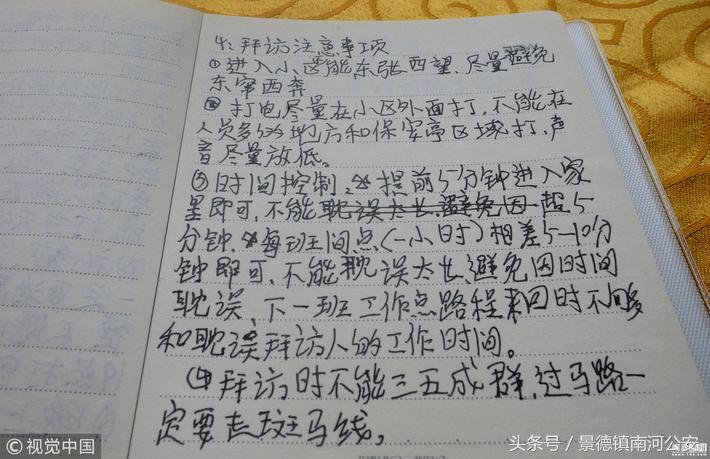 4: 拜访注意事项
①进入小区能东张西望、尽量避免
东窜西奔
②打电尽量在小区外面打,不能在
人员多的地方和保安亭区域打,声
音尽量放低。
③时间控制、提前5分钟进入家
里即可,不能耽误太长避免因超5
分钟、每班间点(一小时)相差5-10分
钟即可、不能耽误太长避免因时间
耽误、下一班工作点路程来回时不够
和耽误拜访人的工作时间。
④拜访时不能三五成群,过马路一
定要走斑马线,
视觉中国
头条号/景德镇南河公安